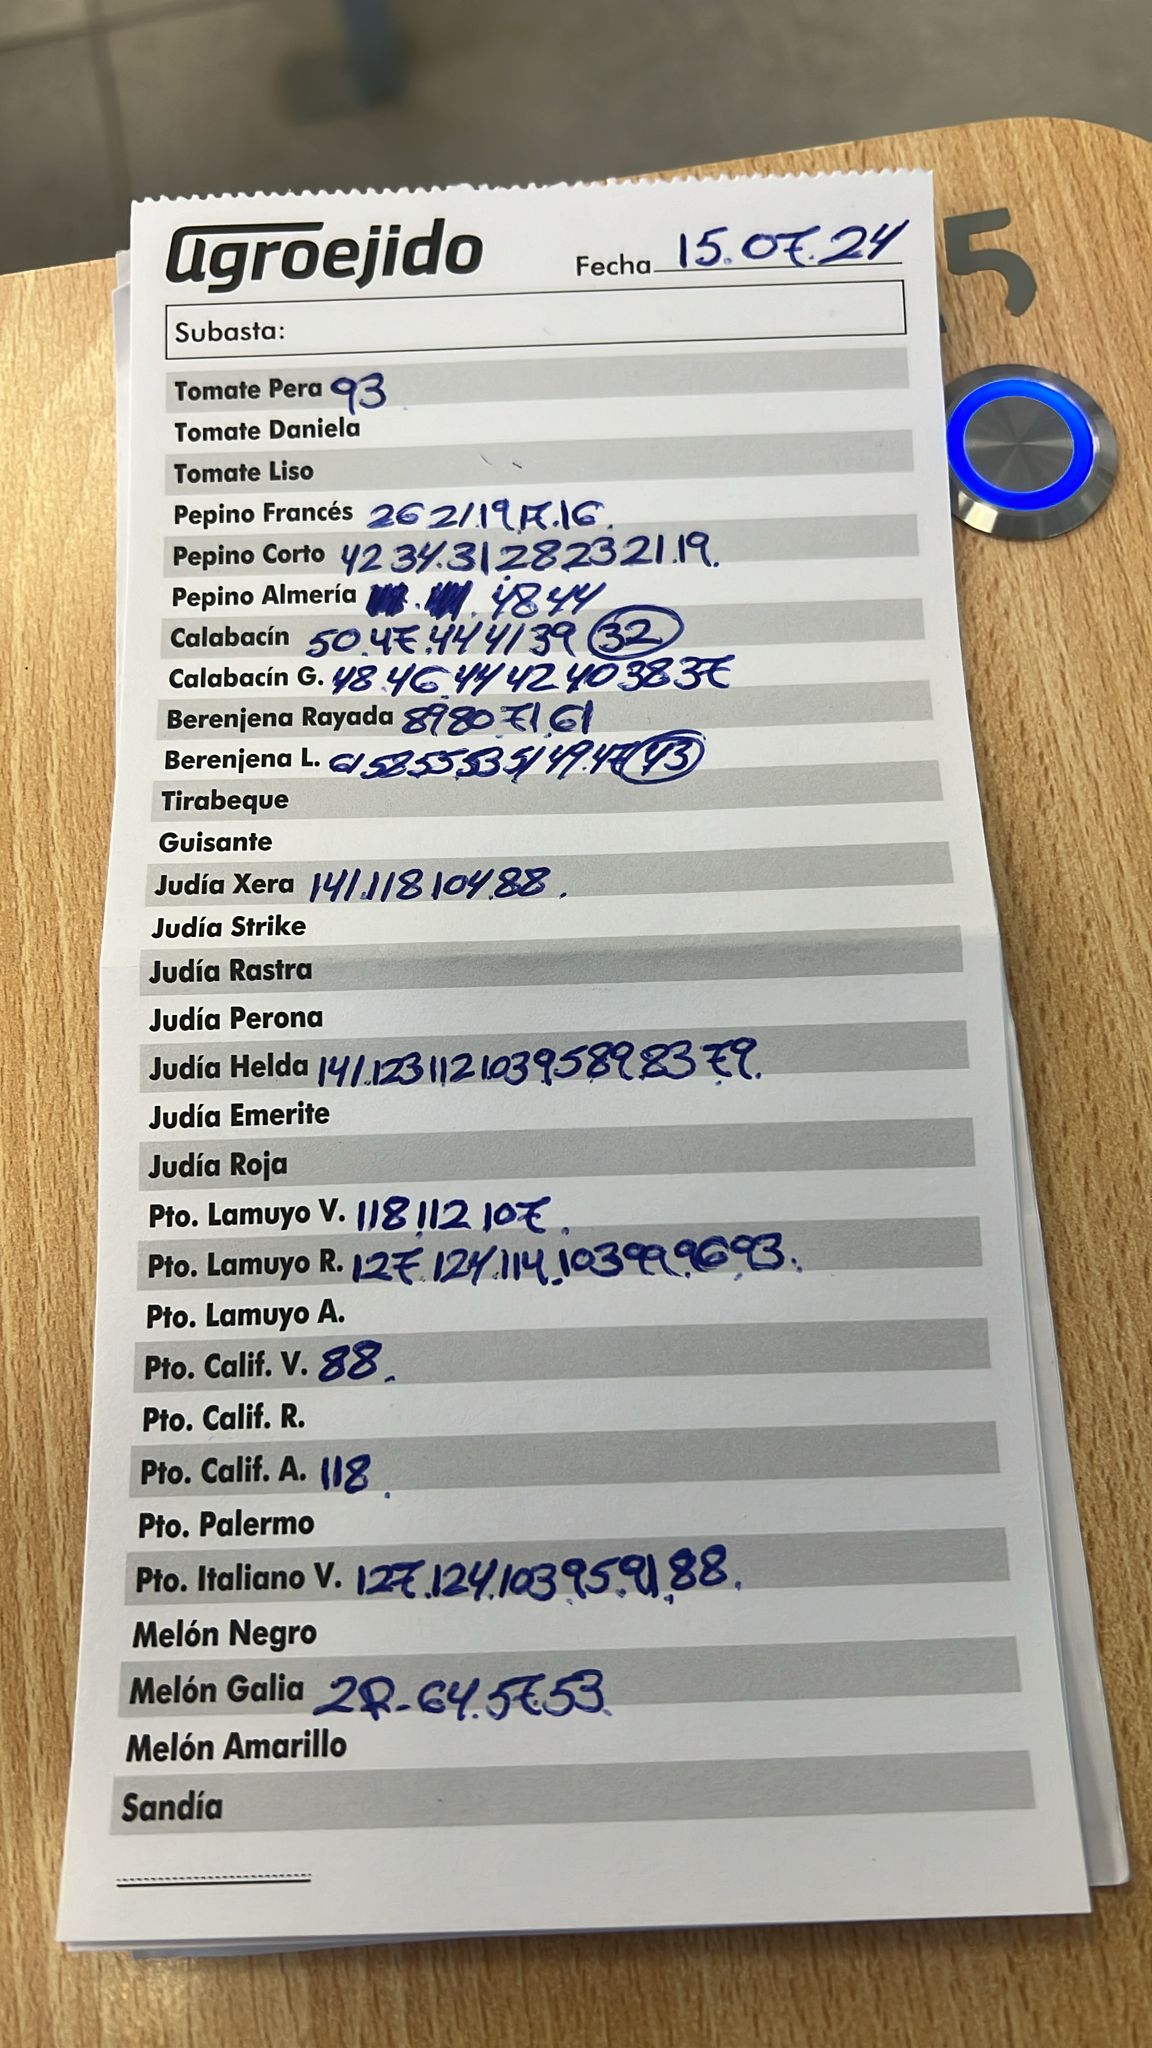 agroejido
Fecha 15.07.24
Subasta:
Tomate Pera 93
Tomate Daniela
Tomate Liso
Pepino Francés 26 21.19.17.16.
Pepino Corto 42 34.31 28 23 21.19.
Pepino Almería 48 44
Calabacín 50.47.44 41 39 32
Calabacín G. 48.46.44 42 40 38 37
Berenjena Rayada 89 80 71.61
Berenjena L. 61 58 55 53 51 49.47 43
Tirabeque
Guisante
Judía Xera 141.118 104.88.
Judía Strike
Judía Rastra
Judía Perona
Judía Helda 141.123 112 103 95 89.83 79.
Judía Emerite
Judía Roja
Pto. Lamuyo V. 118.112 107.
Pto. Lamuyo R. 127.124.114.103 99.96.93.
Pto. Lamuyo A.
Pto. Calif. V. 88.
Pto. Calif. R.
Pto. Calif. A. 118.
Pto. Palermo
Pto. Italiano V. 127.124.103.95.91.88.
Melón Negro
Melón Galia 2R-64.57.53.
Melón Amarillo
Sandía
5